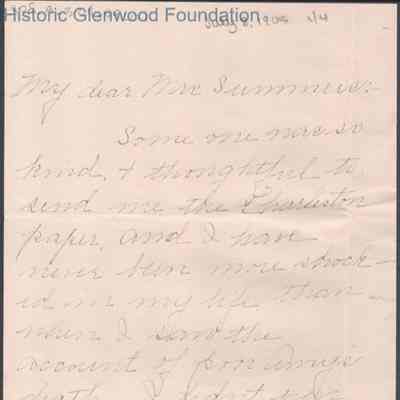 Historic Glenwood Foundation
July 8, 1905 1/4
My dear Mrs Summers:
Some one was so
kind, & thoughtful to
send me the Charleston
paper, and I have
never been more shock-
ed in my life than
when I saw the
account of poor Amy's
death. I didn't